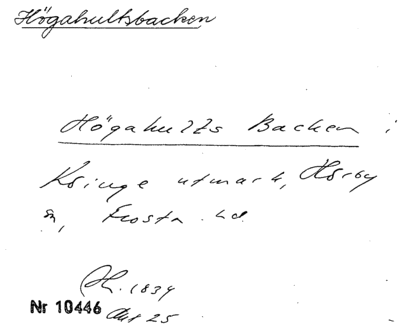 Högahultsbacken
Högahults Backen i
Kringe utmark, Hörby
sn, Frosta hd.
Lh. 1839
Nr 10446 Akt 25